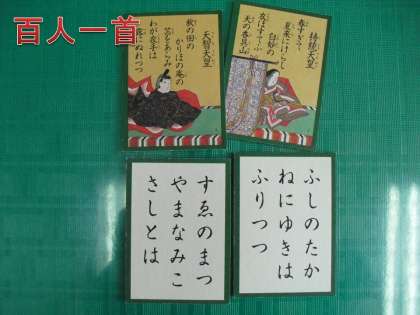 百人一首
持統天皇
春すぎて
夏来にけらし
白妙の
衣ほすてふ
天の香具山
天智天皇
秋の田の
かりほの庵の
苫をあらみ
わが衣手は
露にぬれつつ
ふしのたか
ねにゆきは
ふりつつ
すゑのまつ
やまなみこ
さしとは